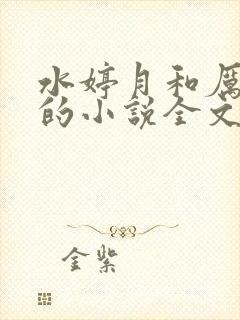 水婷月和厲
的小說全文
金紫